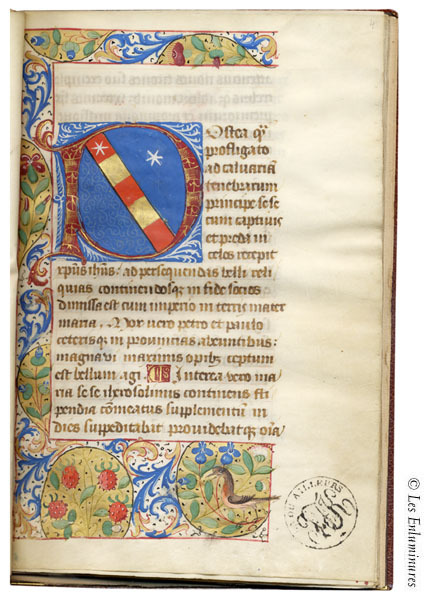 Postea qͣ
profligato
ad calvariā
tenebrarum
principe sese
cum captivis
et preda in
celos recepit
xpus ihus: ad persequendas belli reli
quias continendosqꝫ in fide socios
dimissa est cum imperio in terris mater
maria. Nor vero petro et paulo
ceterisqꝫ in provincias abeuntibus:
magna vi maximis opibꝫ ceptum
est bellum agi. Is interea vero ma
ria se se iherosolimis continens sti
pendia cōmeatus supplementū in
dies suppeditabat providebatqꝫ oīa
AILLEURS
© Les Enluminures